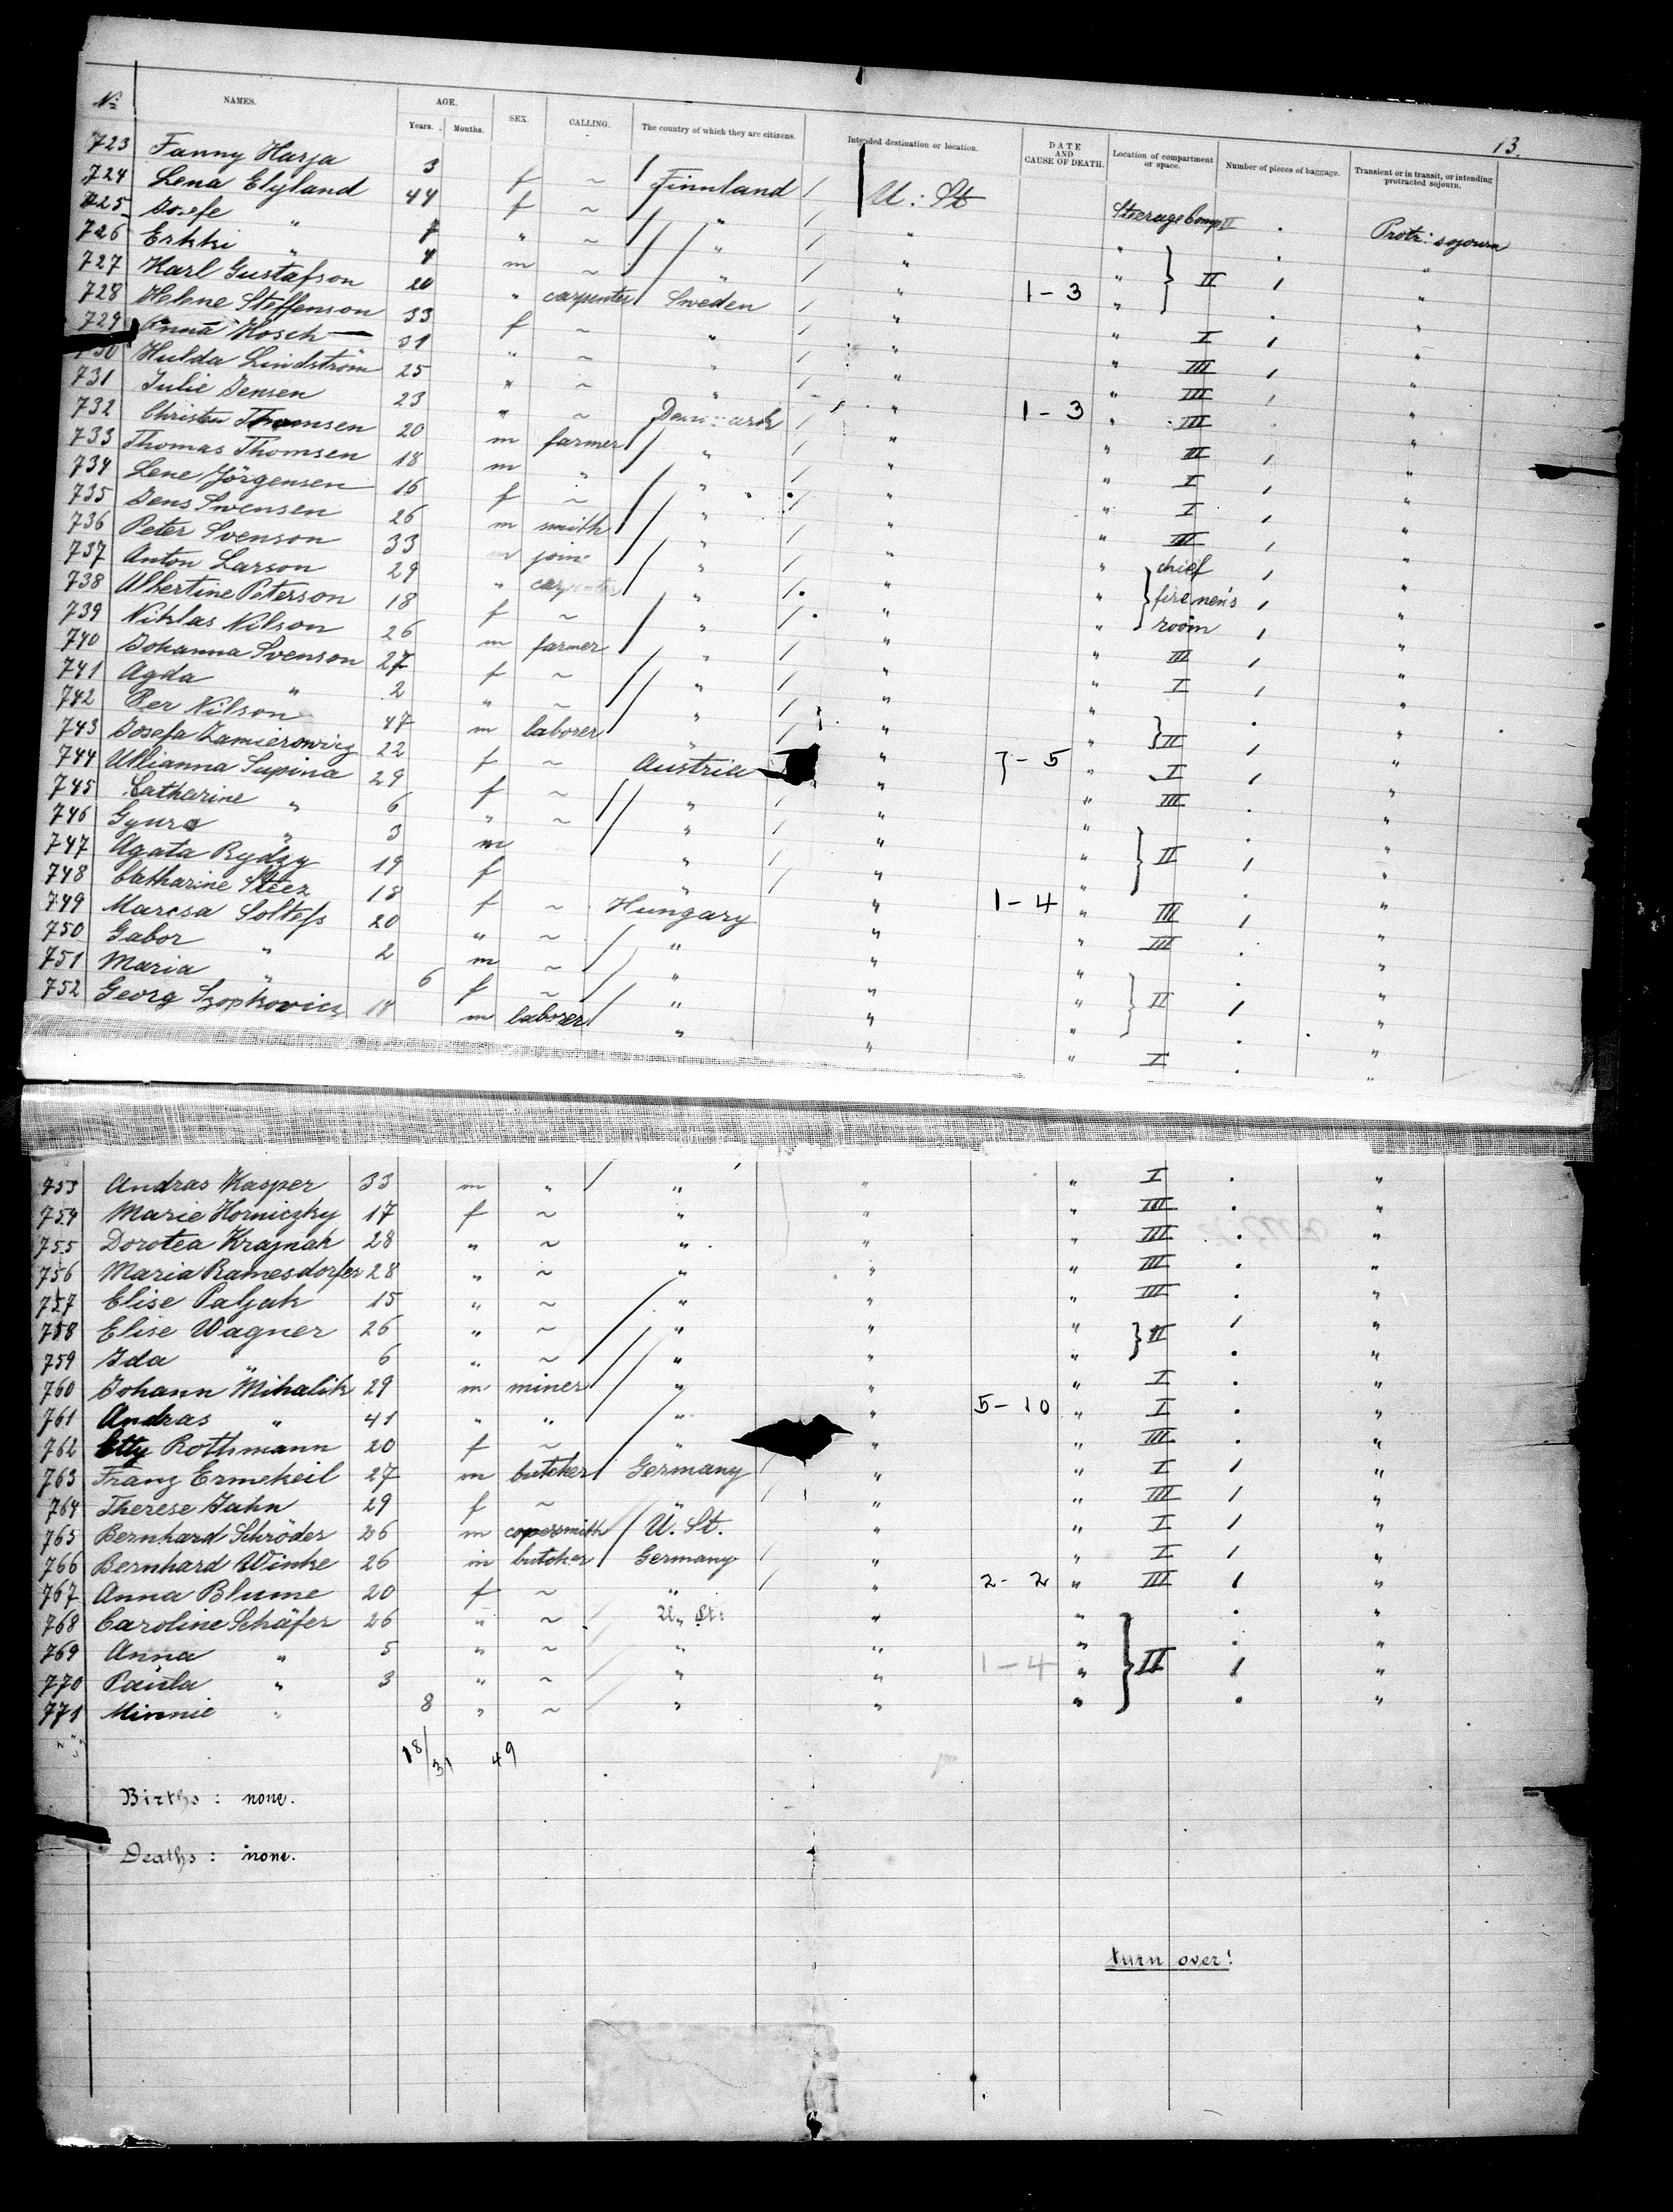 13.
No NAMES. AGE. Years. Months. SEX. CALLING. The country of which they are citizens. Intended destination or location. DATE AND CAUSE OF DEATH. Location of compartment or space. Number of pieces of baggage. Transient or in transit, or intending protracted sojourn.
723 Fanny Harja 3 f ~ Finnland U: St Steerage Comp II . Protr: sojourn
724 Lena Elyland 44 f ~ " " " "
725 Josefe " 7 " ~ " " " "
726 Erkki " 4 m ~ " " " II 1 "
727 Karl Gustafson 20 " carpenter Sweden " 1-3 " I 1 "
728 Helene Steffenson 33 f ~ " " " III 1 "
729 Anna Hosch 31 " ~ " " " III 1 "
730 Hulda Lindström 25 " ~ " " " III "
731 Julie Jensen 23 " ~ Denmark " 1-3 " III 1 "
732 Christen Thomsen 20 m farmer " " " I 1 "
733 Thomas Thomsen 18 m " " " " I 1 "
734 Lene Jörgensen 16 f ~ " " " III 1 "
735 Jens Swensen 26 m smith " " " chief 1 "
736 Peter Svenson 33 m join " " " firemen's 1 "
737 Anton Larson 29 " carpenter " " " room 1 "
738 Albertine Peterson 18 f ~ " " " III 1 "
739 Niklas Nilson 26 m farmer " " " I 1 "
740 Johanna Svenson 27 f ~ " " " . "
741 Agda " 2 " ~ " " " II 1 "
742 Per Nilson 47 m laborer " " " I 1 "
743 Josefa Zamierowicz 22 f ~ Austria " 7-5 " III . "
744 Ullianna Supina 29 f ~ " " " . "
745 Catharine " 6 " ~ " " " II 1 "
746 Gyura " 3 m " " " . "
747 Agata Rydzy 19 f " " " III 1 "
748 Catharine Steez 18 f ~ Hungary " 1-4 " III . "
749 Marcsa Soltess 20 " ~ " " " . "
750 Gabor " 2 m ~ " " " II 1 "
751 Maria " 6 f ~ " " " . "
752 Georg Szopkovicz 18 m laborer " " " I . "
753 Andras Kasper 33 m " " " " I . "
754 Marie Horniczky 17 f ~ " " " III . "
755 Dorotea Krajnak 28 " ~ " " " III . "
756 Maria Ramesdorfer 28 " ~ " " " III . "
757 Elise Paljak 15 " ~ " " " III . "
758 Elise Wagner 26 " ~ " " " II 1 "
759 Ida " 6 " ~ " " " . "
760 Johann Mihalik 29 m miner " " " I . "
761 Andras " 41 " " " " 5-10 " I . "
762 Etty Rothmann 20 f ~ " " " III . "
763 Franz Ermekeil 27 m butcher Germany " " I 1 "
764 Therese Jahn 29 f ~ " " " III 1 "
765 Bernhard Schröder 26 m copersmith U. St. " " I 1 "
766 Bernhard Winke 26 m butcher Germany " " I 1 "
767 Anna Blume 20 f ~ " " 2-2 " III 1 "
768 Caroline Schäfer 26 " ~ U. St: " " . "
769 Anna " 5 " ~ " " " . "
770 Paula " 3 " ~ " " 1-4 " II 1 "
771 Minnie " 8 " ~ " " " . "
18/31 49
Births: none.
Deaths: none.
turn over!